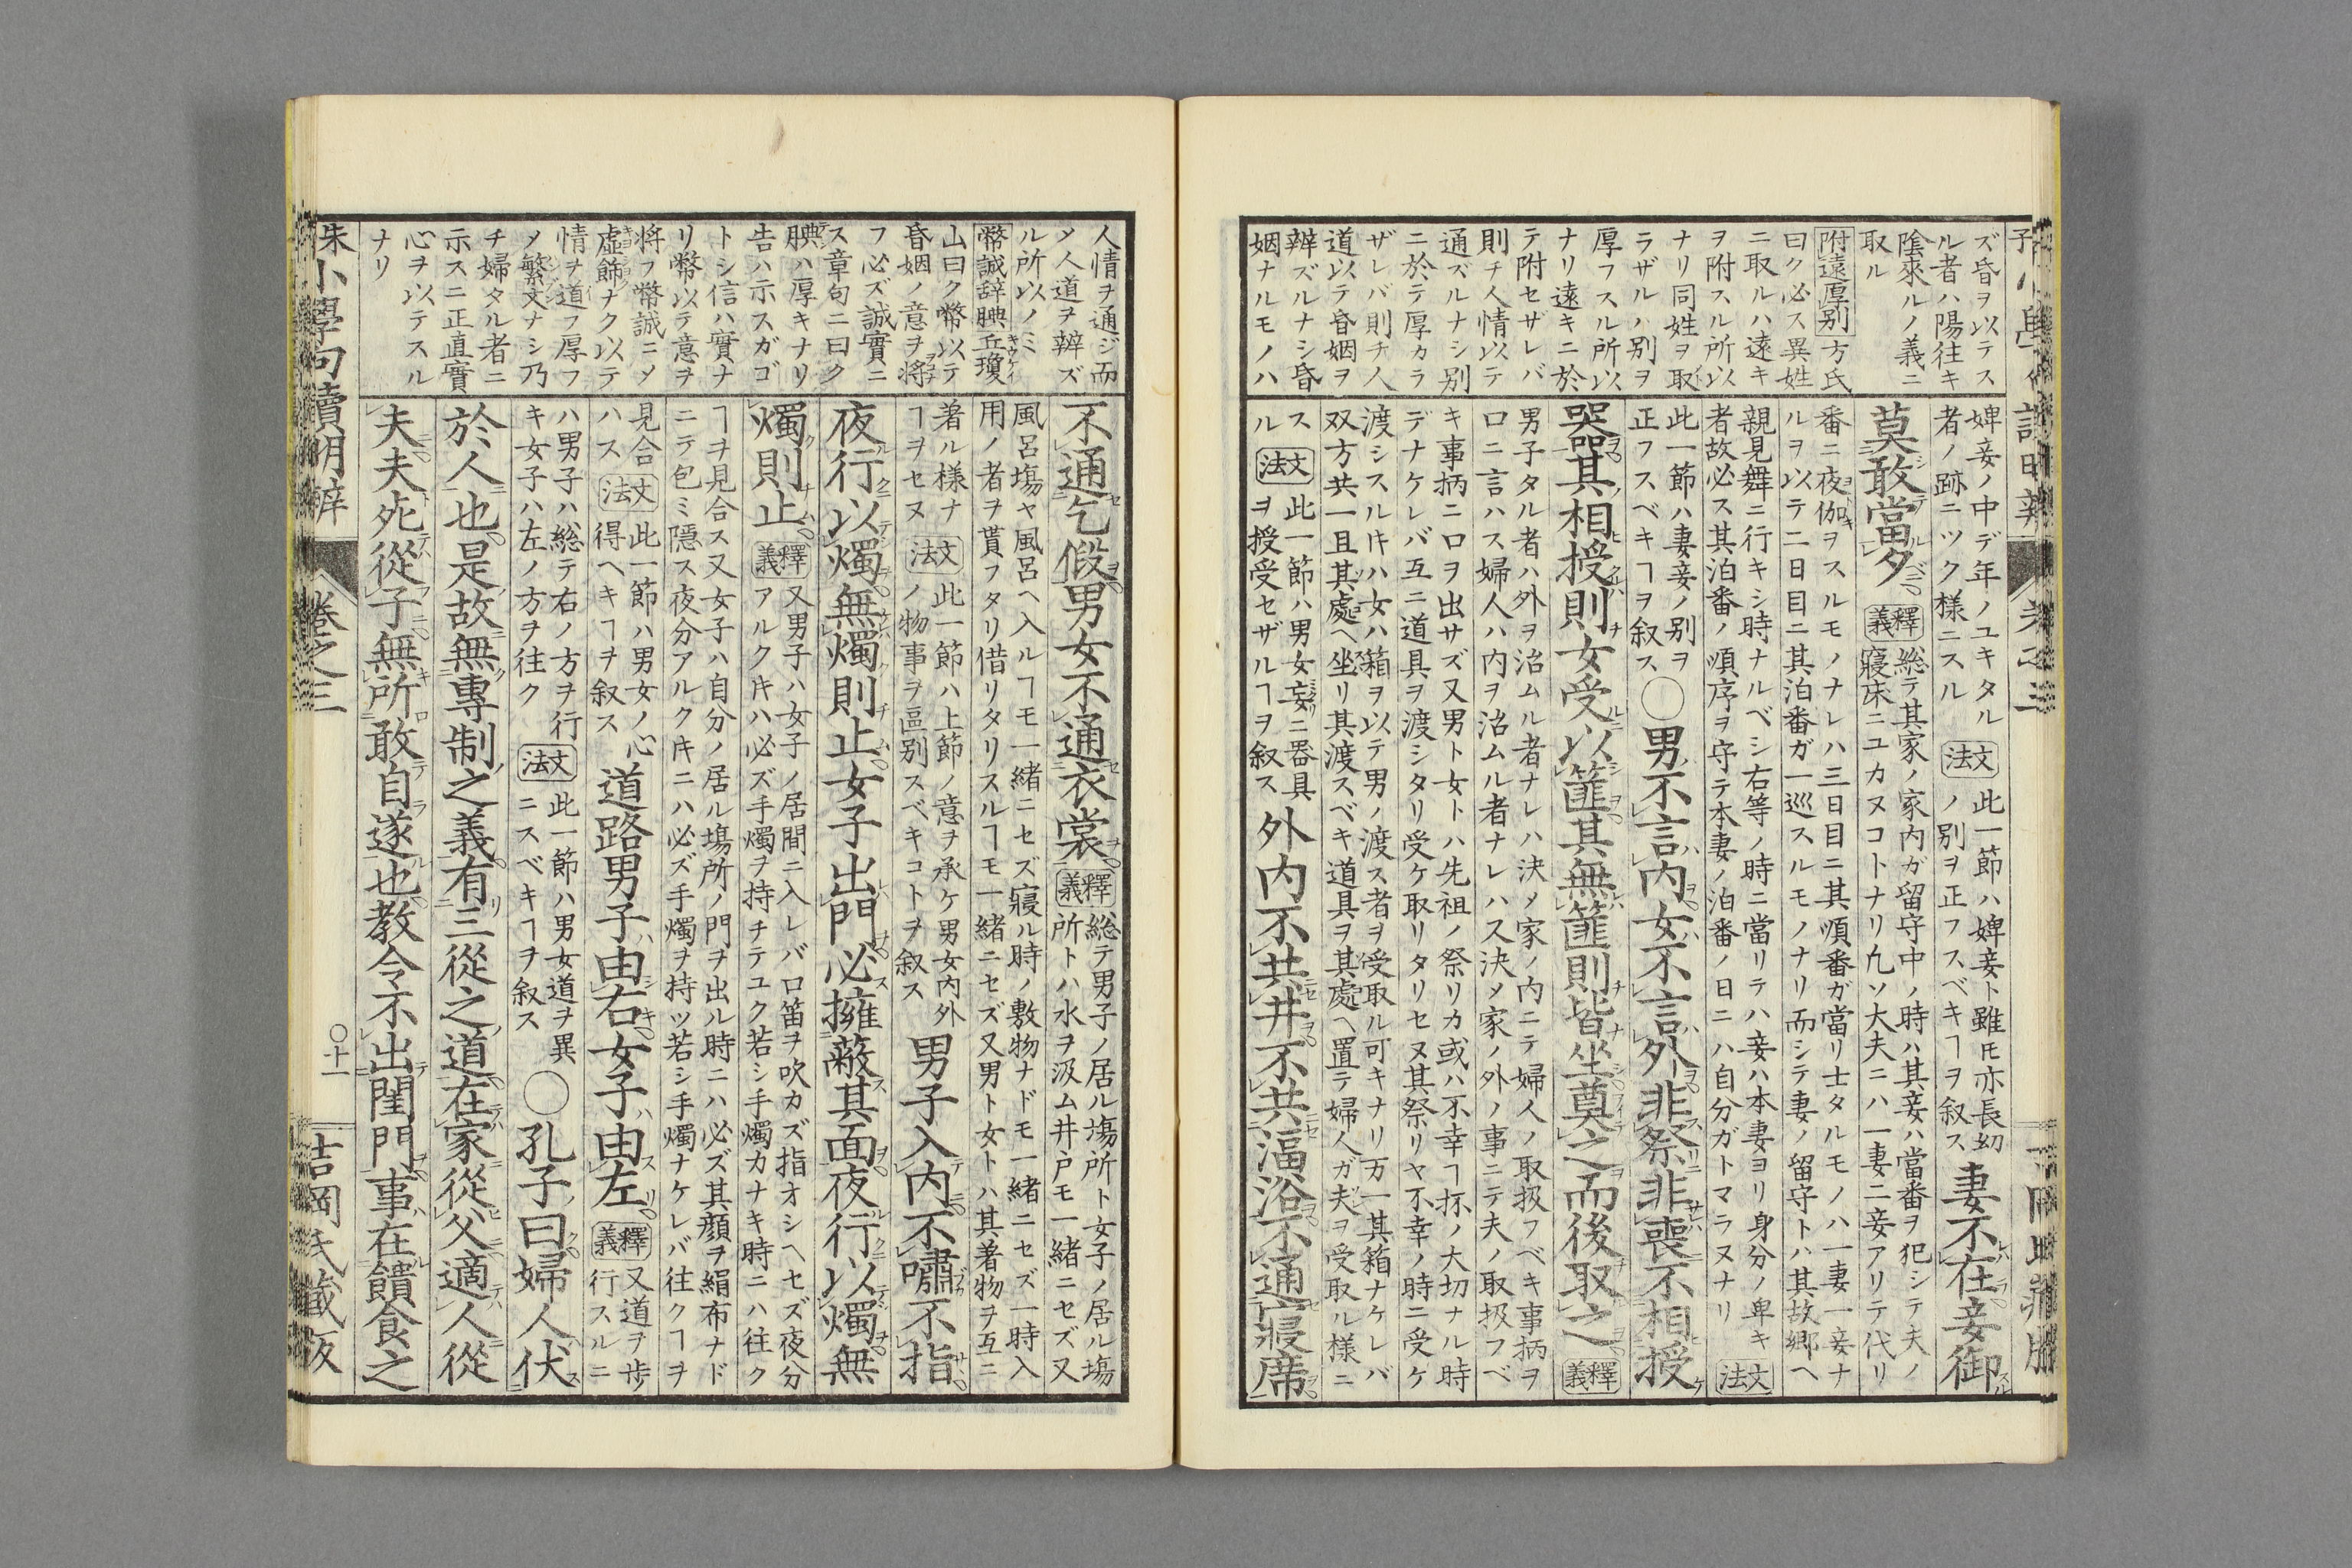 ズ昏ヲ以テス
ル者ハ陽往キ
陰來ルノ義ニ
取ル
附遠厚別 方氏
曰ク必ス異姓
ニ取ルハ遠キ
ヲ附スル所以
ナリ同姓ヲ取
ラザルハ別ヲ
厚フスル所以
ナリ遠キニ於
テ附セザレバ
則チ人情以テ
通ズルナシ別
ニ於テ厚カラ
ザレバ則チ人
道以テ昏姻ヲ
辨ズルナシ昏
姻ナルモノハ
婢妾ノ中デ年ノユキタル
者ノ跡ニツク樣ニスル
文法
此一節ハ婢妾ト雖モ亦長幼
ノ別ヲ正フスベキヿヲ叙ス
妻不在妾御
莫敢當夕
釋義
總テ其家ノ家内ガ留守中ノ時ハ其妾ハ當番ヲ犯シテ夫ノ
寢床ニユカヌコトナリ凢ソ大夫ニハ一妻二妾アリテ代リ
番ニ夜伽ヲスルモノナレハ三日目ニ其順番ガ當リ士タルモノハ一妻一妾ナ
ルヲ以テ二日目ニ其泊番ガ一巡スルモノナリ而シテ妻ノ留守トハ其故郷ヘ
親見舞ニ行キシ時ナルベシ右等ノ時ニ當リテハ妾ハ本妻ヨリ身分ノ卑キ
者故必ス其泊番ノ順序ヲ守テ本妻ノ泊番ノ日ニハ自分ガトマラヌナリ
文法
此一節ハ妻妾ノ別ヲ
正フスベキヿヲ叙ス
○男不言内女不言外非祭非喪不相授
器其相授則女受以篚其無篚則皆坐奠之而後取之
釋義
男子タル者ハ外ヲ治ムル者ナレハ決メ家ノ内ニテ婦人ノ取扱フベキ事柄ヲ
口ニ言ハス婦人ハ内ヲ治ムル者ナレハス決メ家ノ外ノ事ニテ夫ノ取扱フベ
キ事柄ニロヲ出サズ又男ト女トハ先祖ノ祭リカ或ハ不幸ヿ抔ノ大切ナル時
デナケレバ互ニ道具ヲ渡シタリ受ケ取リタリセヌ其祭リヤ不幸ノ時ニ受ケ
渡シスル𪜈ハ女ハ箱ヲ以テ男ノ渡ス者ヲ受取ル可キナリ万一其箱ナケレバ
双方共一旦其處ヘ坐リ其渡スベキ道具ヲ其處ヘ置テ婦人ガ夫ヲ受取ル樣ニ
ス
ル
文法
此一節ハ男女妄ニ器具
ヲ授受セザルヿヲ叙ス
外内不共井不共湢浴不通寢席
人情ヲ通ジ而
メ人道ヲ辨ズ
ル所以ノミ
幣誠辞腆 丘瓊
山曰ク幣以テ
昏姻ノ意ヲ將
フ必ズ誠實ニ
ス章句ニ曰ク
腆ハ厚キナリ
告ハ示スガゴ
トシ信ハ實ナ
リ幣以テ意ヲ
将フ幣誠ニメ
虚飾ナク以テ
情ヲ道フ厚フ
メ繁文ナシ乃
チ婦タル者ニ
示スニ正直實
心ヲ以テスル
ナリ
不通乞假男女不通衣裳
釋義
總テ男子ノ居ル塲所ト女子ノ居ル塲
所トハ水ヲ汲ム井戸モ一緒ニセズ又
風呂塲ヤ風呂ヘ入ルヿモ一緒ニセズ寢ル時ノ敷物ナドモ一緒ニセズ一時入
用ノ者ヲ貰フタリ借リタリスルヿモ一緒ニセズ又男ト女トハ其著物ヲ互ニ
著ル樣ナ
ヿヲセヌ
文法
此一節ハ上節ノ意ヲ承ケ男女内外
ノ物事ヲ區別スベキコトヲ叙ス
男子入内不嘯不指
夜行以燭無燭則止女子出門必擁蔽其面夜行以燭無
燭則止
釋義
又男子ハ女子ノ居間ニ入レバ口笛ヲ吹カズ指オシヘセズ夜分
アルク𪜈ハ必ズ手燭ヲ持チテユク若シ手燭カナキ時ニハ往ク
ヿヲ見合ス又女子ハ自分ノ居ル塲所ノ門ヲ出ル時ニハ必ズ其顔ヲ絹布ナド
ニテ包ミ隱ス夜分アルク𪜈ニハ必ズ手燭ヲ持ツ若シ手燭ナケレバ往クヿヲ
見合
ハス
文法
此一節ハ男女ノ心
得ヘキヿヲ叙ス
道路男子由右女子由左
釋義
又道ヲ歩
行スルニ
ハ男子ハ總テ右ノ方ヲ行
キ女子ハ左ノ方ヲ往ク
文法
此一節ハ男女道ヲ異
ニスベキヿヲ叙ス
○孔子曰婦人伏
於人也是故無專制之義有三從之道在家從父適人從
夫夫死從子無所敢自遂也教令不出閨門事在饋食之
朱小學句讀明辨
卷之三
○十一
吉岡氏藏版